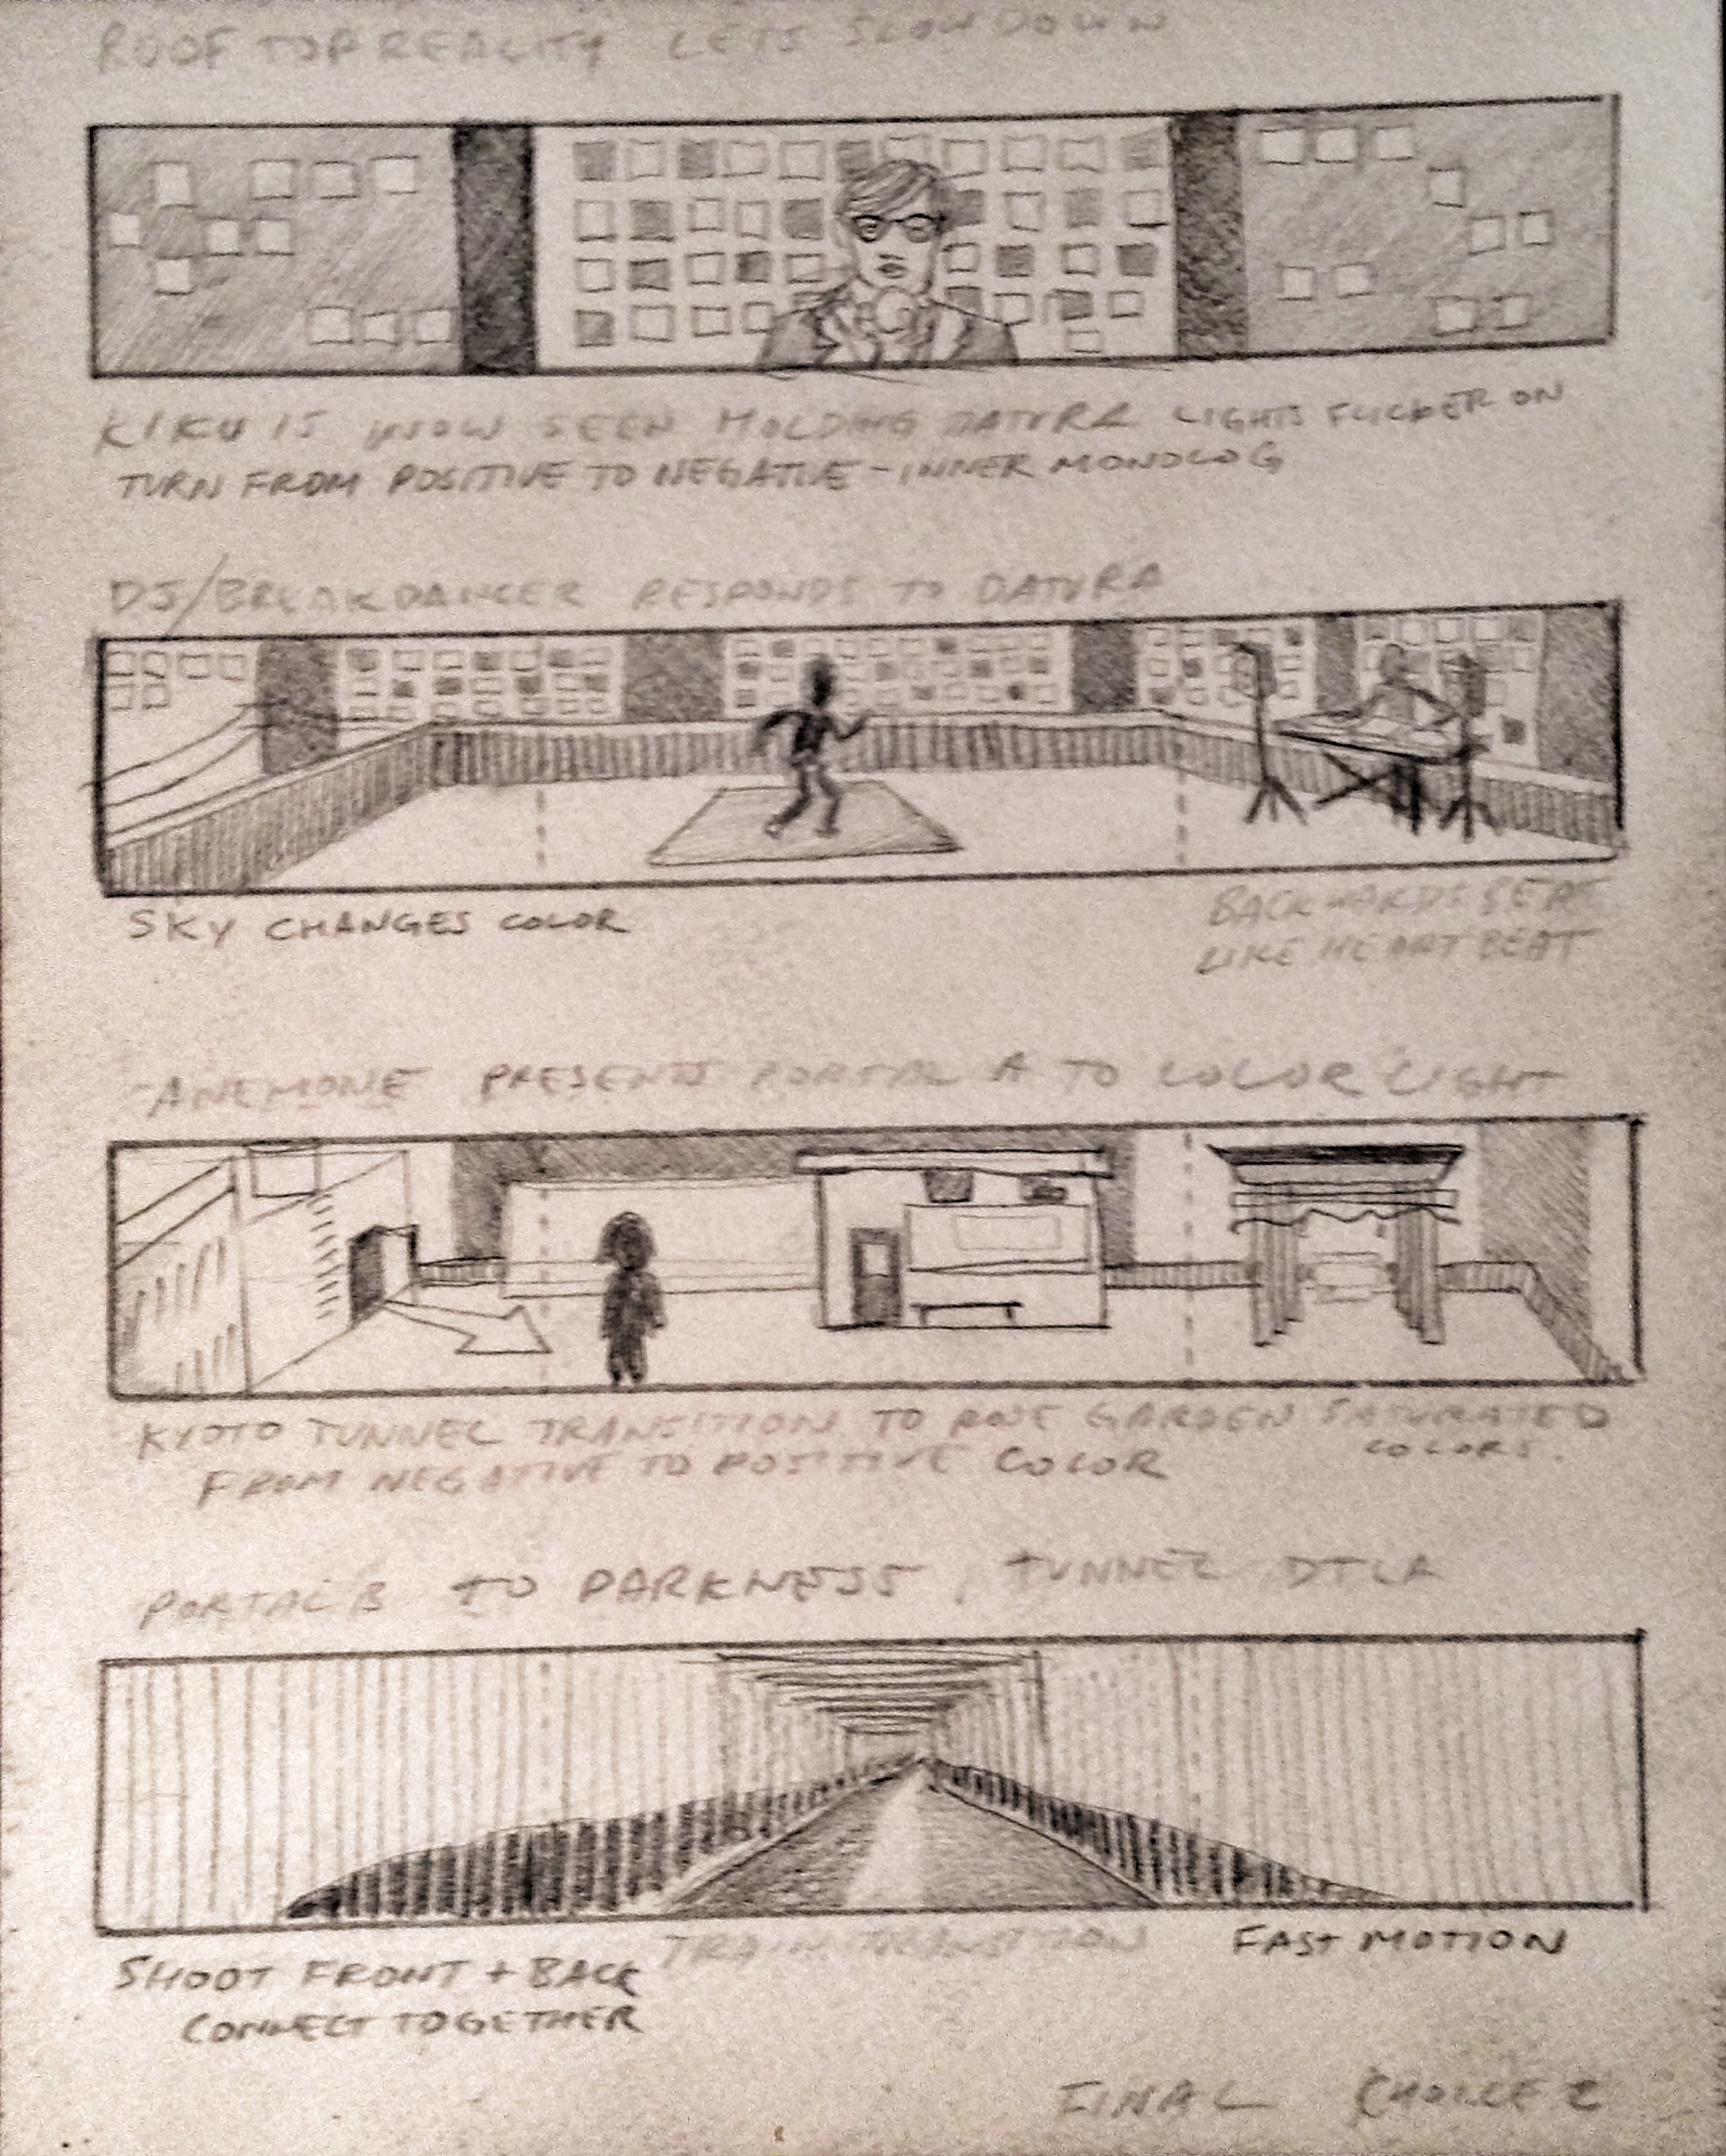 ROOF TOP REALITY LETS SLOW DOWN
KIKU IS NOW SEEN HOLDING DATURA LIGHTS FLICKER ON
TURN FROM POSITIVE TO NEGATIVE - INNER MONOLOG
DJ/BREAKDANCER RESPONDS TO DATURA
SKY CHANGES COLOR
BACKWARDS BEAT
LIKE HEART BEAT
ANEMONE PRESENTS PORTAL A TO COLOR LIGHT
KYOTO TUNNEL TRANSITION TO ROSE GARDEN SATURATED
COLORS.
FROM NEGATIVE TO POSITIVE COLOR
PORTAL B TO DARKNESS, TUNNEL DTLA
TRAIN TRANSITION FAST MOTION
SHOOT FRONT + BACK
CONNECT TOGETHER
FINAL